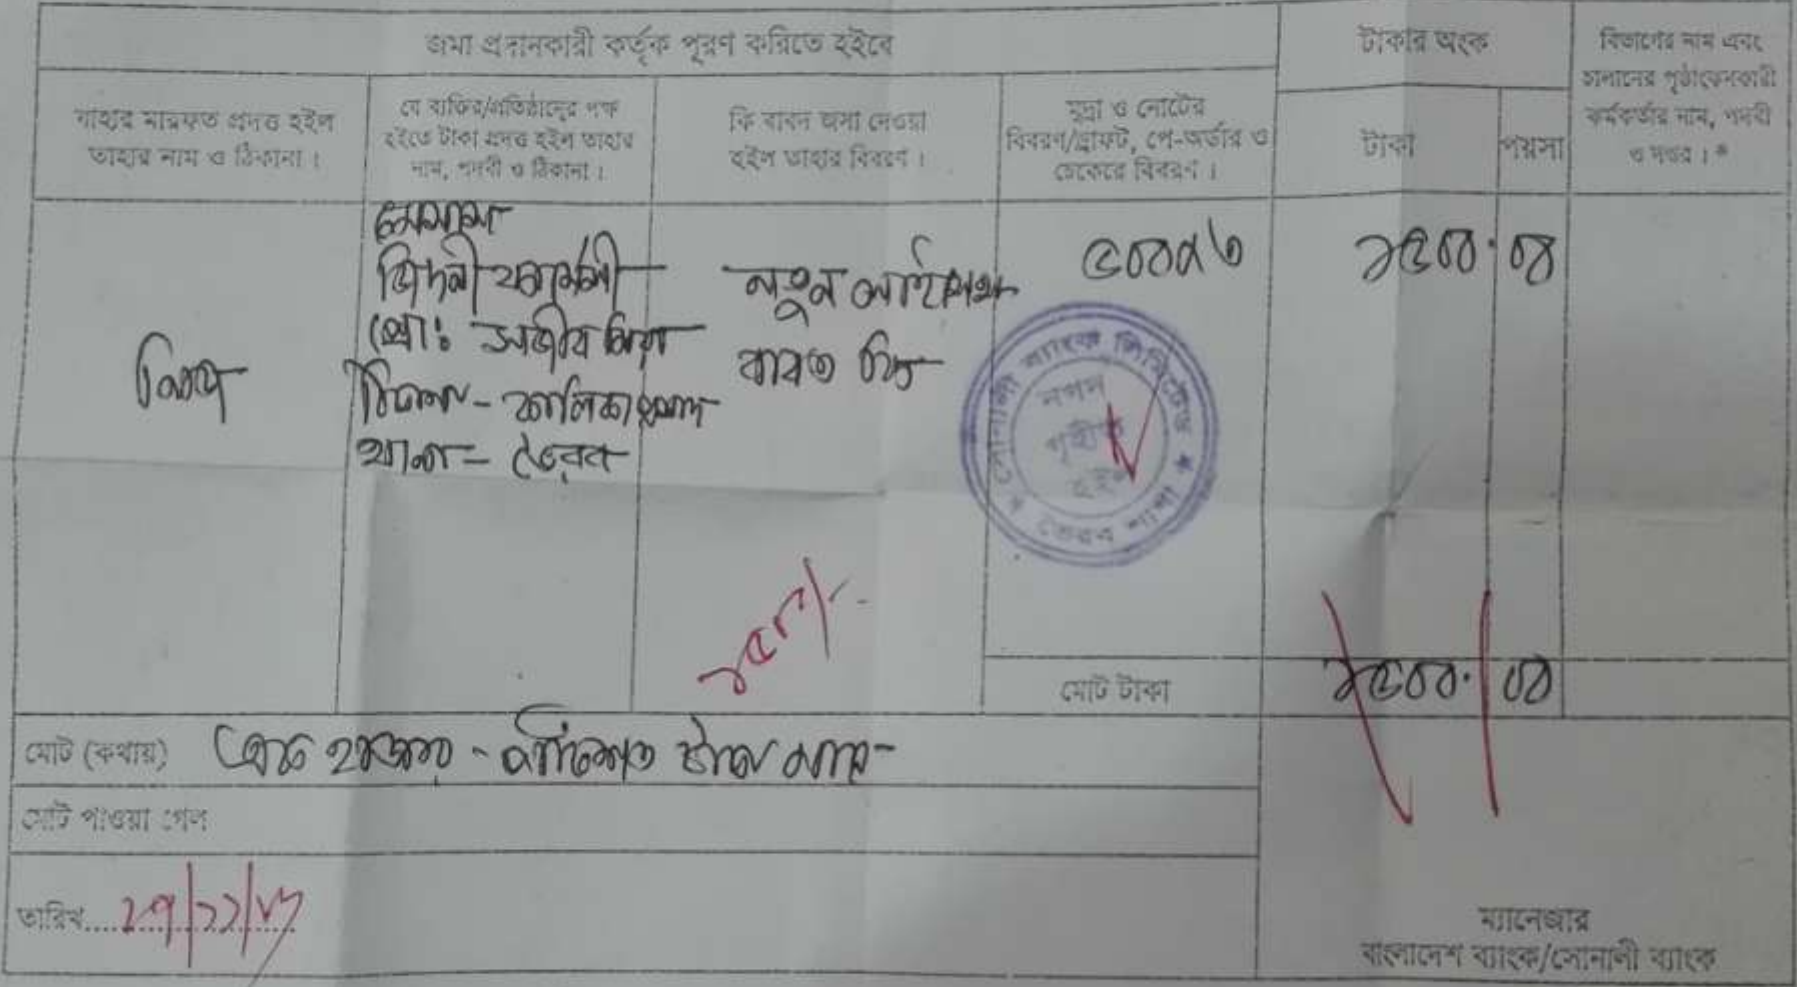 জমা প্রদানকারী কর্তৃক পূরণ করিতে হইবে
টাকার অংক
বিভাগের নাম এবং
চালানের পৃষ্ঠাংকনকারী
কর্মকর্তার নাম, পদবী
ও দপ্তর। *
যাহার মারফত প্রদত্ত হইল
তাহার নাম ও ঠিকানা।
যে ব্যক্তির/প্রতিষ্ঠানের পক্ষ
হইতে টাকা প্রদত্ত হইল তাহার
নাম, পদবী ও ঠিকানা।
কি বাবদ জমা দেওয়া
হইল তাহার বিবরণ।
মুদ্রা ও নোটের
বিবরণ/ড্রাফট, পে-অর্ডার ও
চেকের বিবরণ।
টাকা
পয়সা
নিজে
মেসার্স
জিদনী ফার্মেসী
প্রো: সজীব মিয়া
ঠিকানা - কালিকাপ্রসাদ
থানা - ভৈরব
নতুন লাইসেন্স
বাবত ফি
৫০০x৩
১৫০০.০০
সোনালী ব্যাংক লিমিটেড
ভৈরব শাখা
নগদ
গৃহীত
হইল
মোট টাকা
১৫০০.০০
মোট (কথায়) এক হাজার - পাঁচশত টাকা মাত্র-
মোট পাওয়া গেল
তারিখ....
ম্যানেজার
বাংলাদেশ ব্যাংক/সোনালী ব্যাংক